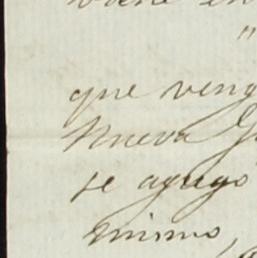 "
que veng
Nueva G
se agregó
mismo,